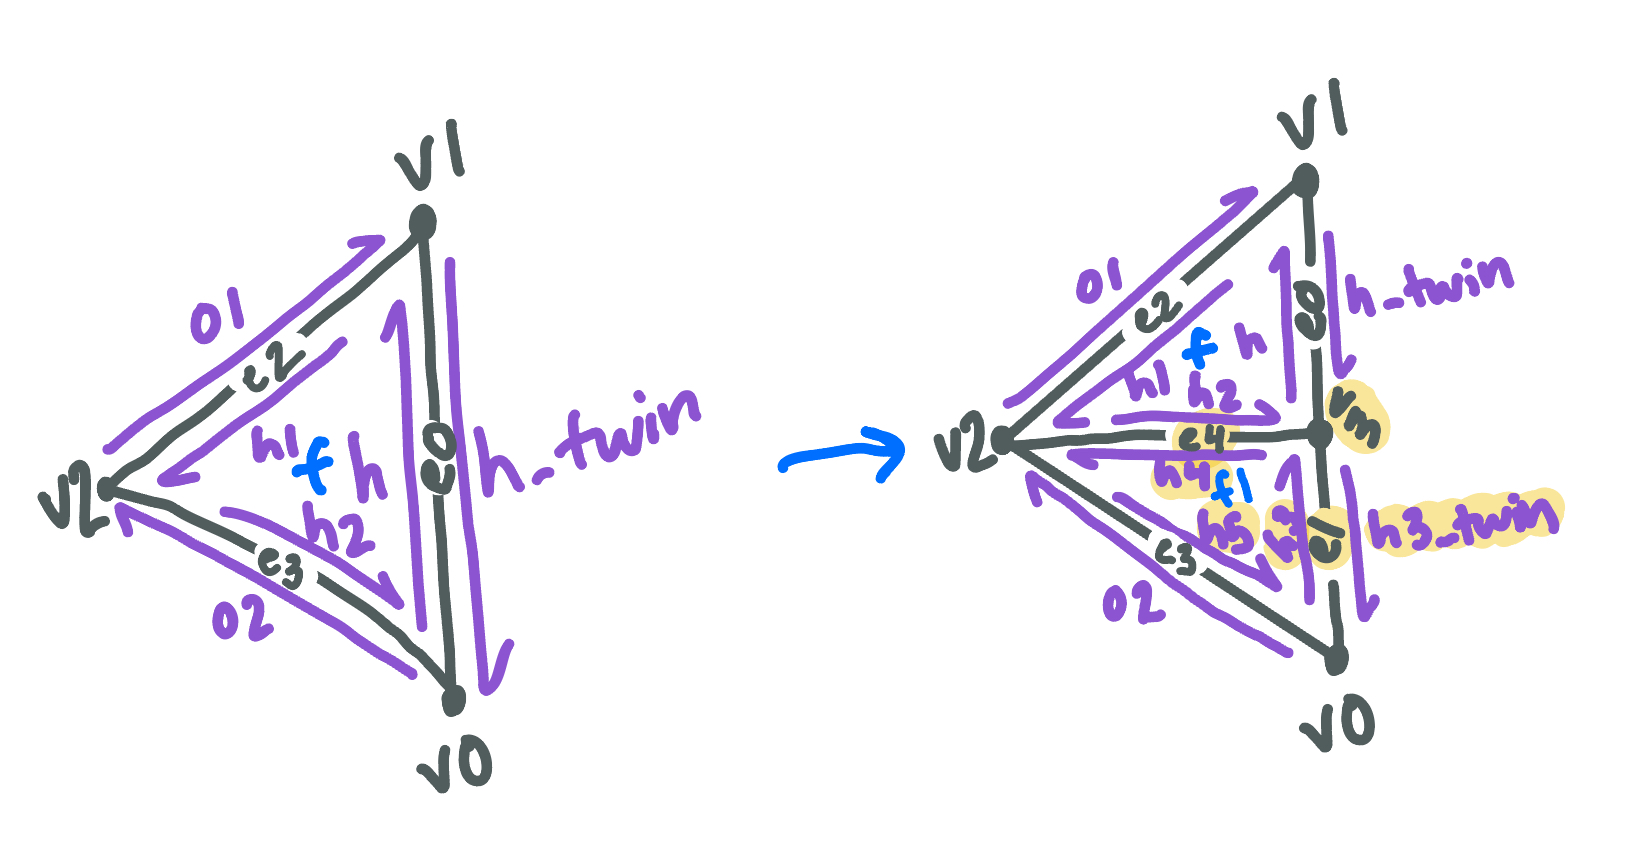 v1
o1
e2
h1
f
h
e0
h_twin
v2
h2
e3
o2
v0
v1
o1
e2
f
h
e0
h_twin
h1
h2
vm
v2
e4
h4
f1
h5
h3
e1
h3_twin
e3
o2
v0